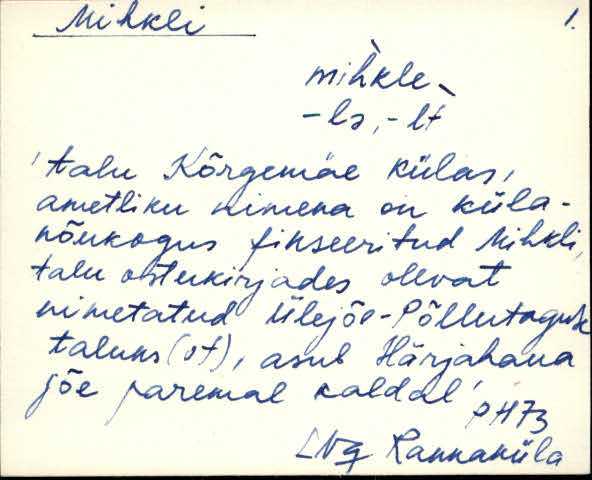 Mihkli 1.
mìhkle
-lə, -lt
'talu Kõrgemäe külas,
ametliku nimena on küla-
nõukogus fikseeritud Mihkli,
talu ostukirjades olevat
nimetatud Ülejõe-Põllutaguse
taluks (vt), asub Härjahana
jõe paremal kaldal'
PH73
LNg Rannaküla